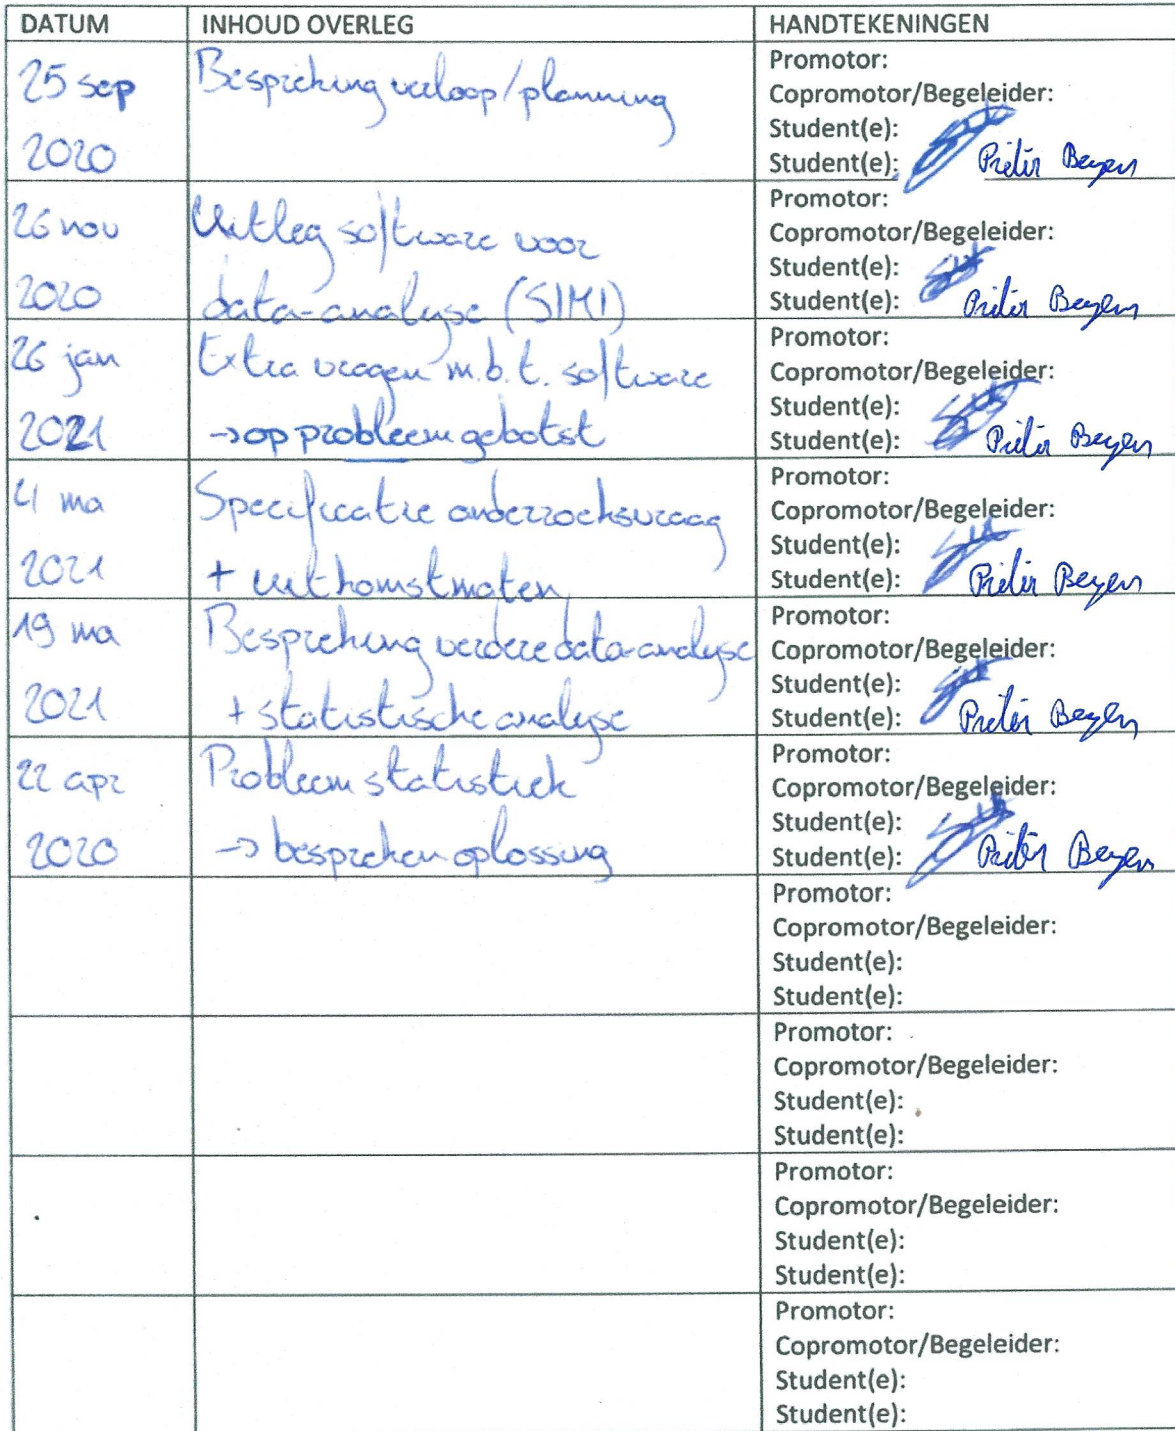 DATUM INHOUD OVERLEG HANDTEKENINGEN
25 sep Bespreking verloop/planning
2020
Promotor:
Copromotor/Begeleider:
Student(e):
Student(e): Pieter Beyens
26 nov Uitleg software voor
2020 data-analyse (SIMI)
Promotor:
Copromotor/Begeleider:
Student(e):
Student(e): Pieter Beyens
26 jan Extra vragen m.b.t. software
2021 → op probleem gebotst
Promotor:
Copromotor/Begeleider:
Student(e):
Student(e): Pieter Beyens
4 ma Specificatie onderzoeksvraag
2021 + uitkomstmaten
Promotor:
Copromotor/Begeleider:
Student(e):
Student(e): Pieter Beyens
19 ma Bespreking verdere data-analyse
2021 + statistische analyse
Promotor:
Copromotor/Begeleider:
Student(e):
Student(e): Pieter Beyens
22 apr Probleem statistiek
2020 → bespreken oplossing
Promotor:
Copromotor/Begeleider:
Student(e):
Student(e): Pieter Beyens
Promotor:
Copromotor/Begeleider:
Student(e):
Student(e):
Promotor:
Copromotor/Begeleider:
Student(e):
Student(e):
Promotor:
Copromotor/Begeleider:
Student(e):
Student(e):
Promotor:
Copromotor/Begeleider:
Student(e):
Student(e):